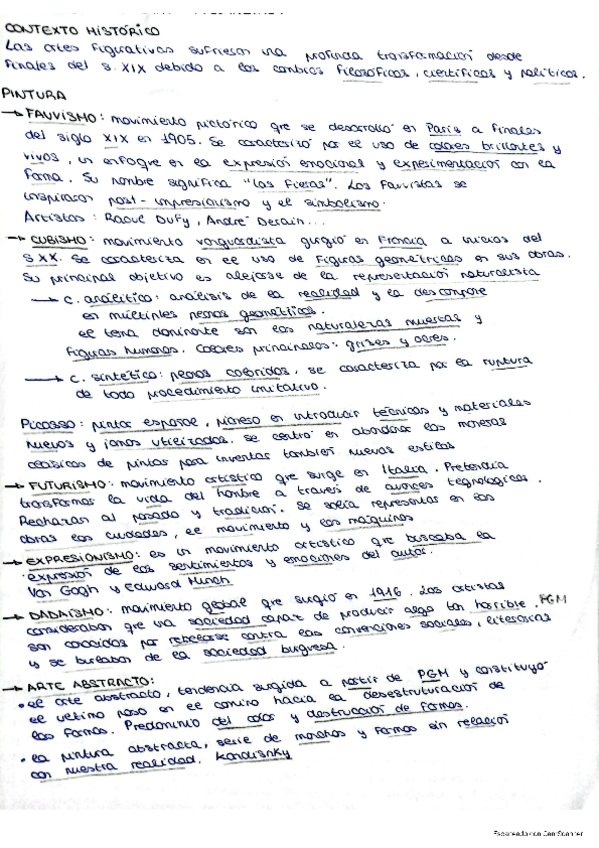 CONTEXTO HISTÓRICO
Las artes figurativas sufrieron una profunda transformación desde
finales del s. XIX debido a los cambios filosóficos, científicos y políticos.
PINTURA
→ FAUVISMO: movimiento pictórico que se desarrolló en París a finales
del siglo XIX en 1905. Se caracterizó por el uso de colores brillantes y
vivos, un enfoque en la expresión emocional y experimentación con la
forma. Su nombre significa "las fieras". Los fauvistas se
inspiraron post-impresionismo y el simbolismo.
Artistas: Raoul Dufy, André Derain...
→ CUBISMO: movimiento vanguardista surgió en Francia a inicios del
S.XX. Se caracteriza en el uso de figuras geométricas en sus obras.
Su principal objetivo es alejarse de la representación naturalista
→ C. analítico: análisis de la realidad y la descompone
en múltiples planos geométricos.
el tema dominante son las naturalezas muertas y
figuras humanas. Colores principales: grises y ocres.
→ C. sintético: planos coloridos, se caracteriza por la ruptura
de todo procedimiento imitativo.
Picasso: pintor español, pionero en introducir técnicas y materiales
nuevos y jamás utilizados. Se centró en abandonar las maneras
clásicas de pintar para inventar también nuevos estilos
→ FUTURISMO: movimiento artístico que surge en Italia. Pretendía
transformar la vida del hombre a través de avances tegnologicos.
Rechazan al pasado y tradición. Se solía representar en las
obras las ciudades, el movimiento y las máquinas
→ EXPRESIONISMO: es un movimiento artístico que buscaba la
expresión de los sentimientos y emociones del autor.
Van Gogh y Edward Munch
→ DADAÍSMO: movimiento global que surgió en 1916. Los artistas
consideraban que una sociedad capaz de producir algo tan horrible, PGM
son conocidos por rebelarse contra las convenciones sociales, literarias
y se burlaban de la sociedad burguesa.
→ ARTE ABSTRACTO:
• el arte abstracto, tendencia surgida a partir de PGM y constituyó
el último paso en el camino hacia la desestruturación de
las formas. Predominio del color y destrucción de formas.
• la pintura abstracta, serie de manchas y formas sin relación
con nuestra realidad. Kandisnky
Escaneado con CamScanner